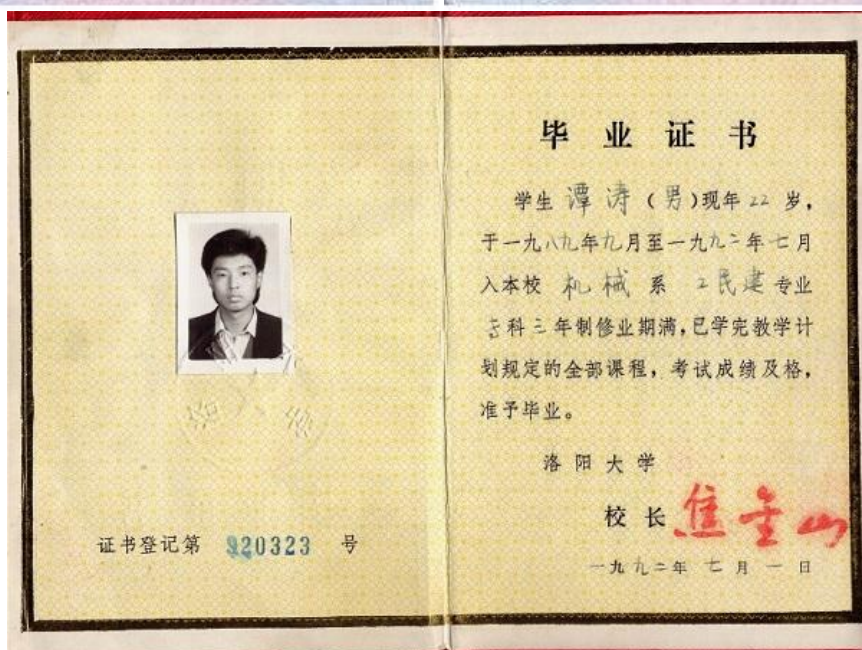 证书登记第 920323 号
毕业证书
学生 谭涛 (男)现年 22 岁,
于一九八九年九月至一九九二年七月
入本校 机械 系 工民建 专业
专科三年制修业期满,已学完教学计
划规定的全部课程,考试成绩及格,
准予毕业。
洛阳大学
校长 焦金山
一九九二年 七 月 一 日